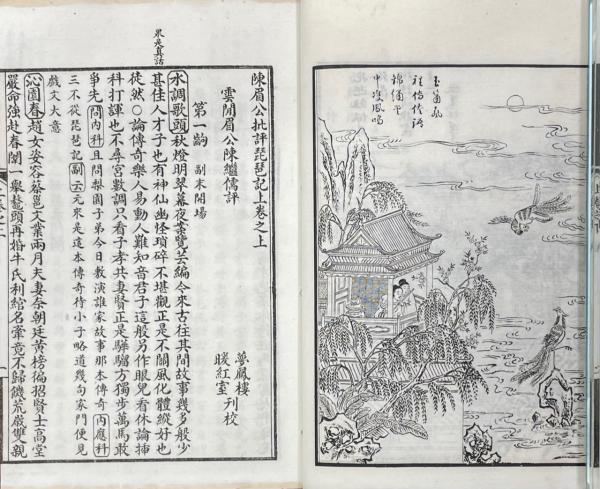 中雙鳳鳴
陳眉公批評琵琶記上卷之上
雲間眉公陳繼儒評
夢鳳樓
暖紅室
刊校
第一齣 副末開場
水調歌頭秋燈明翠幕夜案覽芸編今來古往其間故事幾多般少
甚佳人才子也有神仙幽怪瑣碎不堪觀正是不關風化體縱好也
徒然○論傳奇樂人易動人難知音君子這般另作眼兒看休論插
科打諢也不尋宮數調只看子孝共妻賢正是驊騮方獨步萬馬敢
爭先問內科且問梨園子弟今日敷演誰家故事那本傳奇內應科
三不從琵琶記副云元來是這本傳奇待小子略道幾句家門便見
戲文大意
沁園春趙女姿容蔡邕文業兩月夫妻奈朝廷黃榜徧招賢士高堂
嚴命強赴春闈一舉鰲頭再婚牛氏利綰名牽竟不歸饑荒歲雙親
果是真話